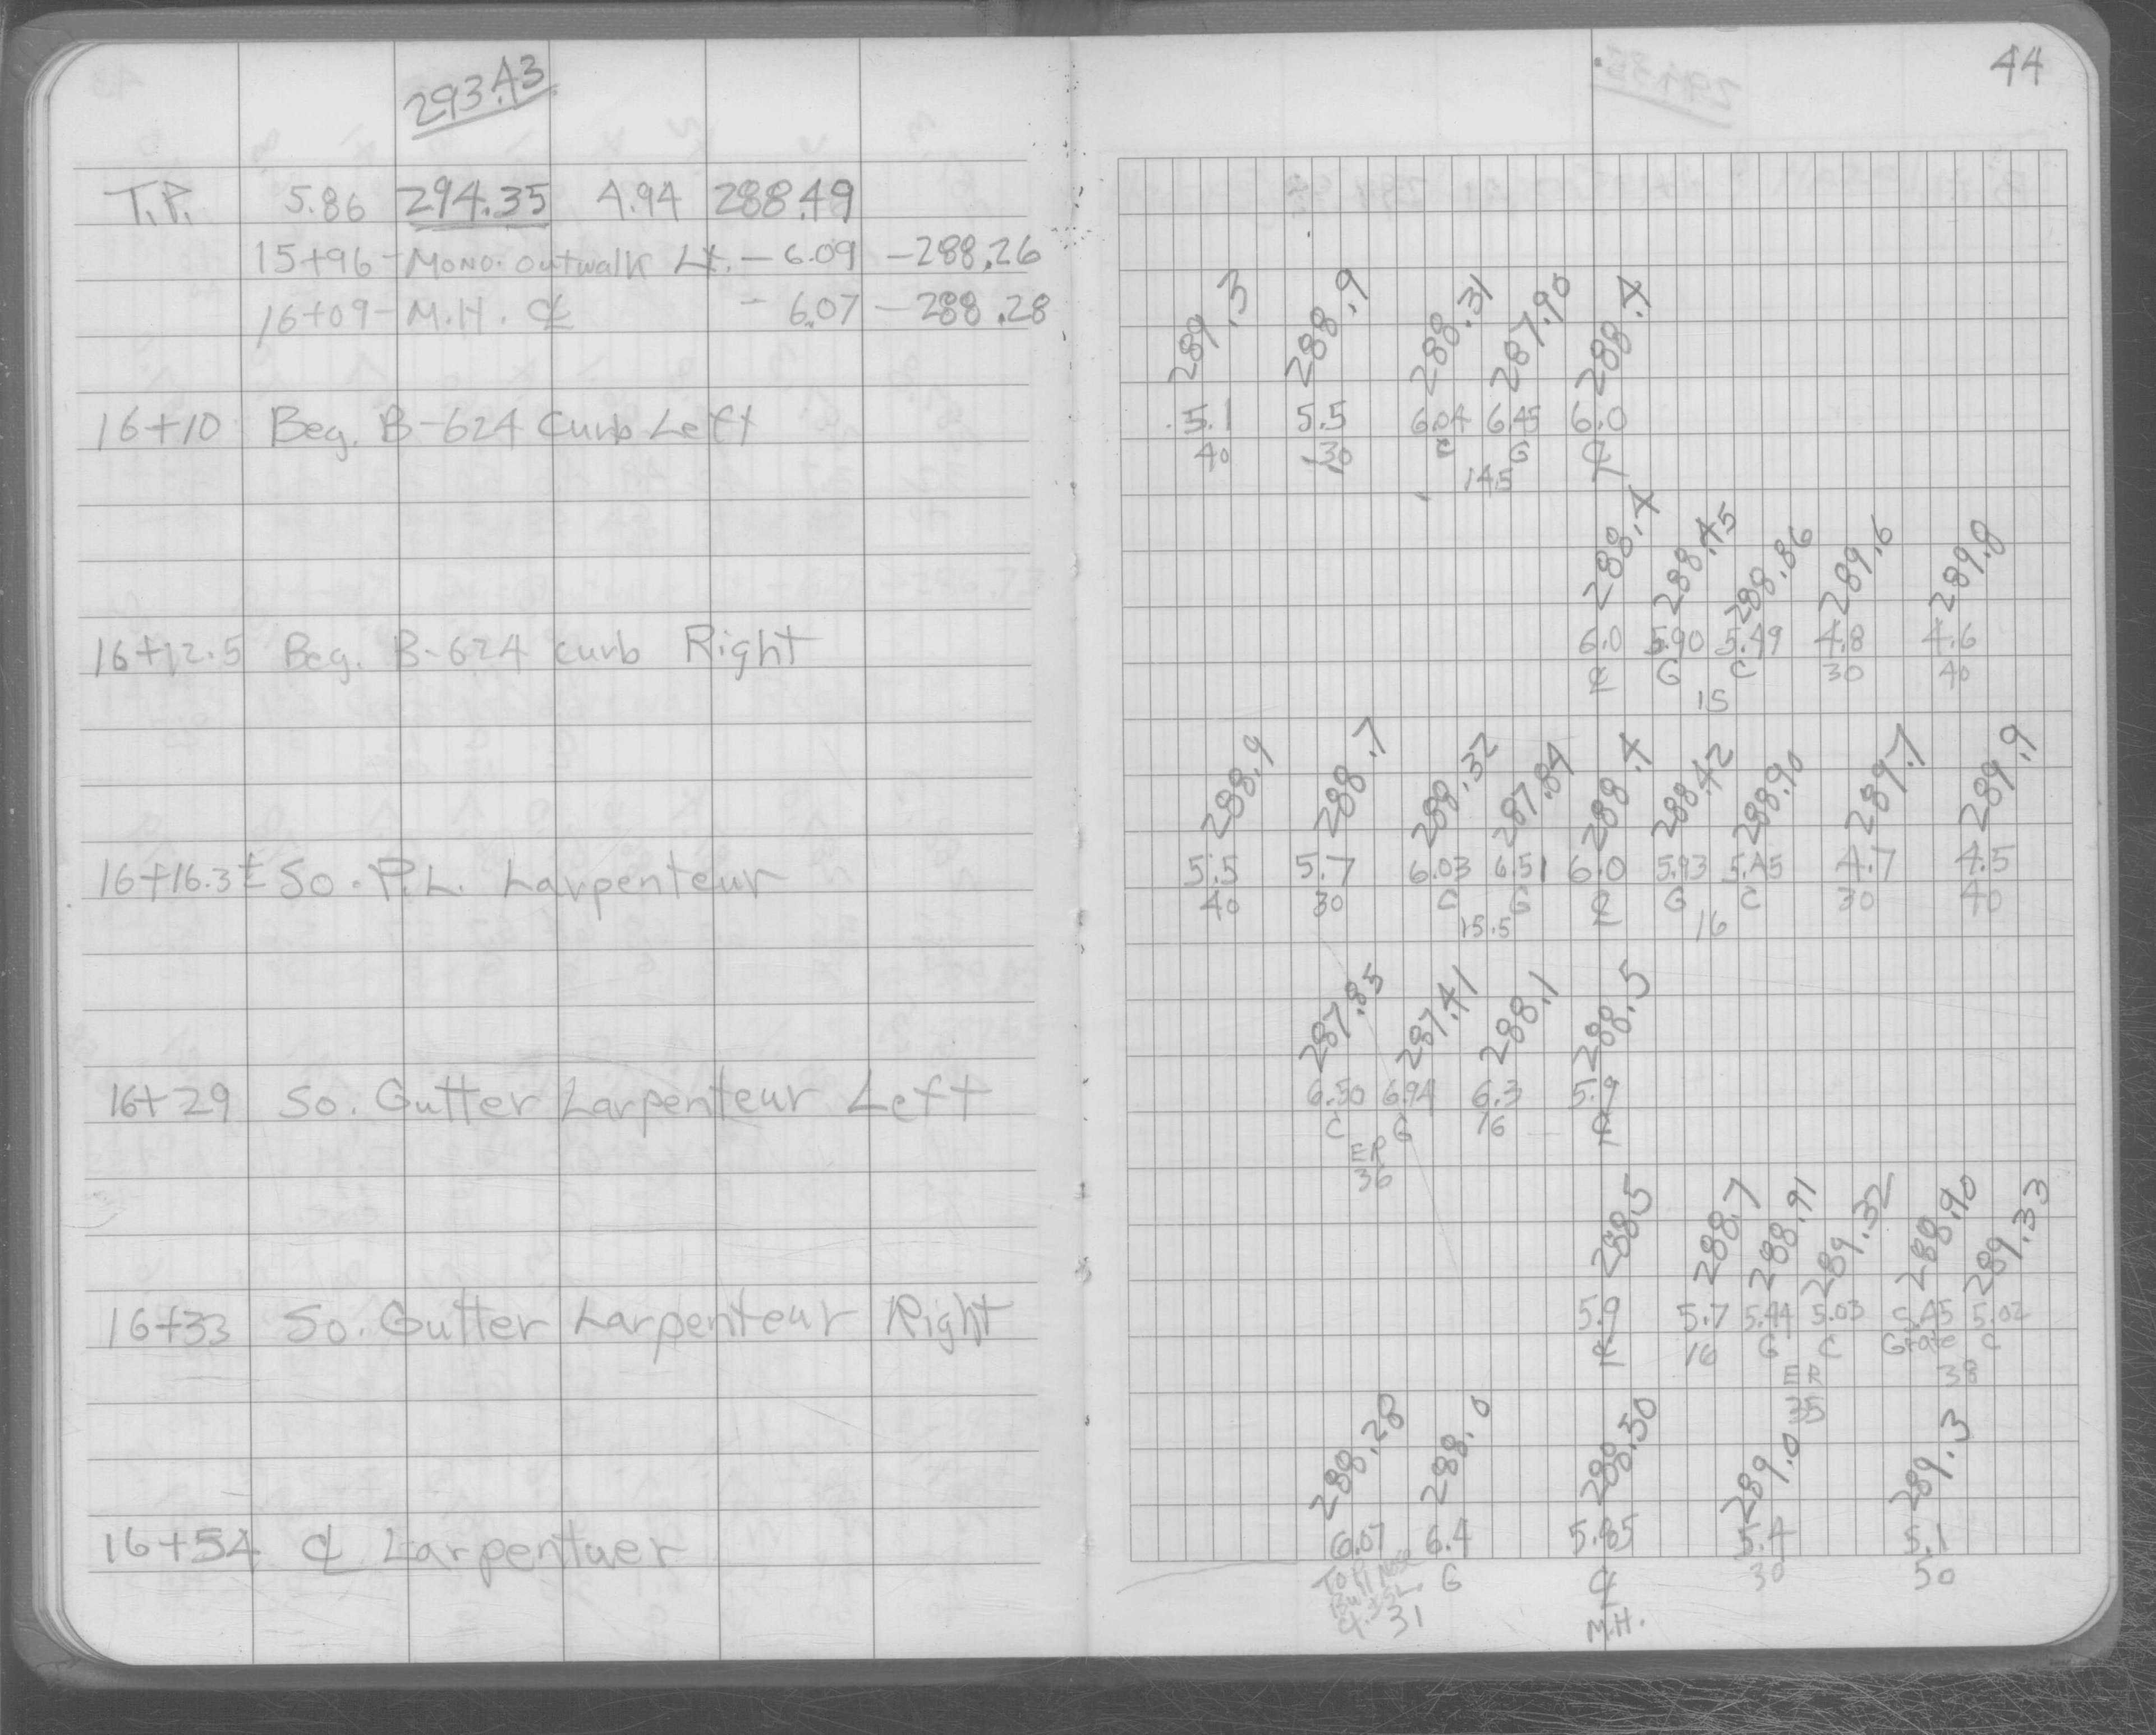 293.43
44
T.P. 5.86 294.35 4.94 288.49
15+96 - Mono. outwalk Lt. - 6.09 - 288.26
16+09 - M.H. ℄ - 6.07 - 288.28
289.3 288.9 288.31 287.90 288.4
16+10 Beg. B-624 Curb Left 5.1 5.5 6.04 6.45 6.0
40 30 C G ℄
14.5
288.4 288.45 288.86 289.6 289.8
16+12.5 Beg. B-624 curb Right 6.0 5.90 5.49 4.8 4.6
℄ G C 30 40
15
288.9 288.7 288.32 287.84 288.4 288.42 288.90 289.7 289.9
16+16.3± So. P.L. Larpenteur 5.5 5.7 6.03 6.51 6.0 5.93 5.45 4.7 4.5
40 30 C G ℄ G C 30 40
15.5 16
287.85 287.41 288.1 288.5
16+29 So. Gutter Larpenteur Left 6.50 6.94 6.3 5.9
C G 16 ℄
ER
36
288.5 288.7 288.91 289.32 288.90 289.33
16+33 So. Gutter Larpenteur Right 5.9 5.7 5.44 5.03 5.45 5.02
℄ 16 G C Grate C
ER 38
35
288.28 288.0 288.50 289.0 289.3
16+54 ℄ Larpentuer 6.07 6.4 5.85 5.4 5.1
Top G ℄ 30 50
Bull Nose
31 M.H.